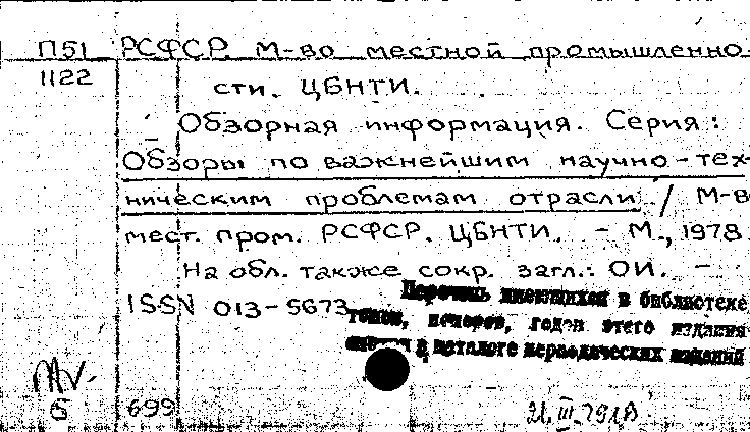 П51 РСФСР. М-во местной промышленно-
1122 сти. ЦБНТИ.
Обзорная информация. Серия:
Обзоры по важнейшим научно-тех-
ническим проблемам отрасли / М-в
мест. пром. РСФСР. ЦБНТИ. - М., 1978
На обл. также сокр. загл.: ОИ. -
ISSN 013-5673
Перечень имеющихся в библиотеке
томов, номеров, годов этого издания
в каталоге периодических изданий
6 699